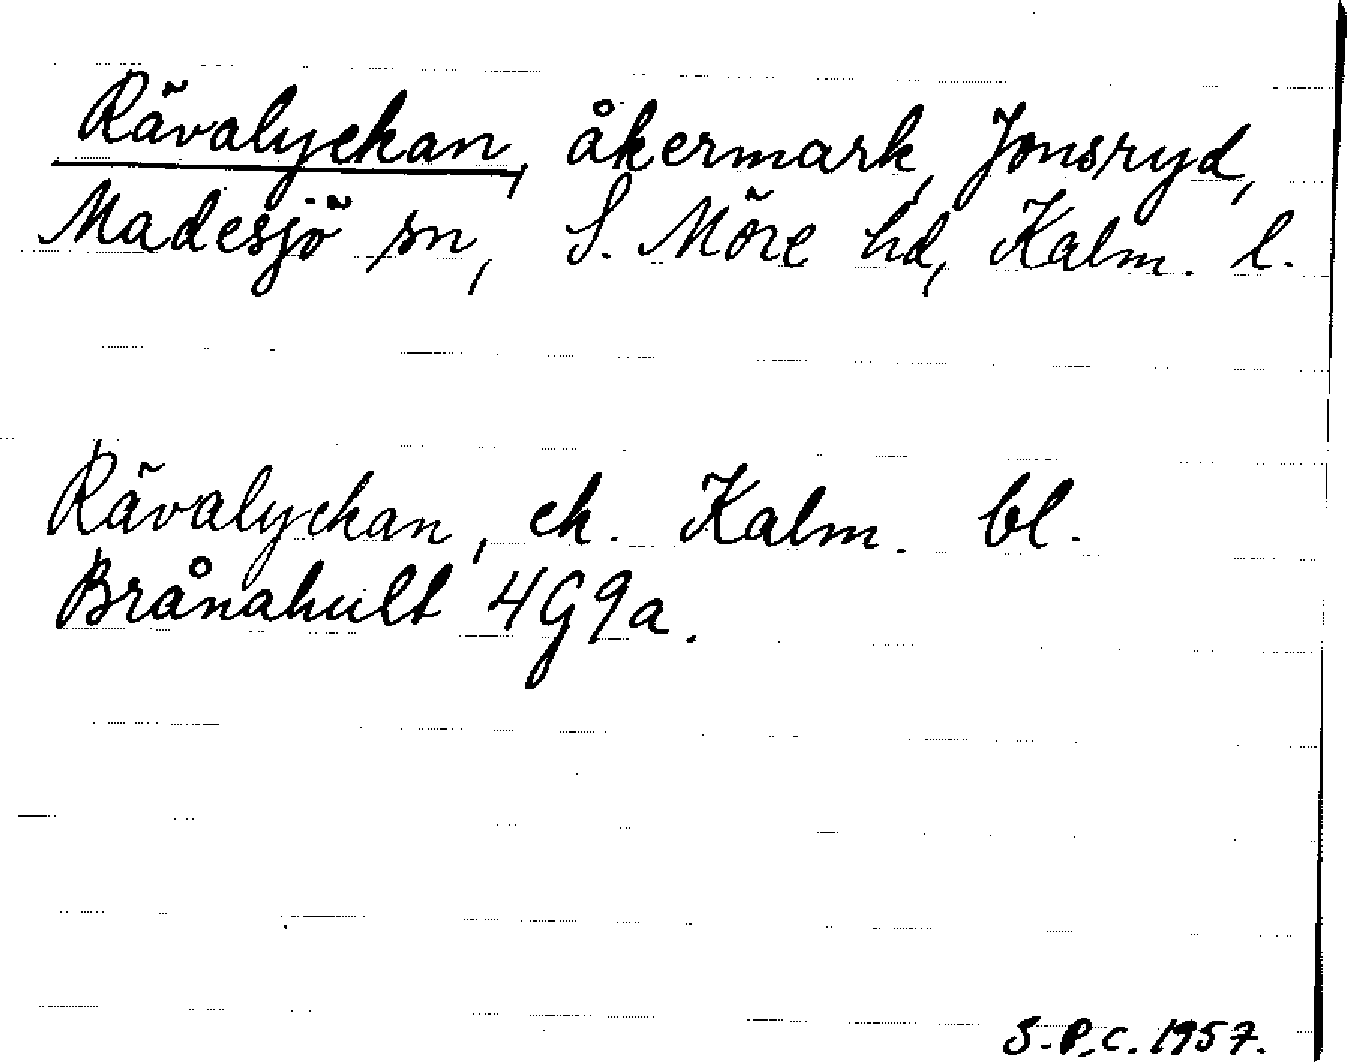 Rävalyckan, åkermark, Jonsryd,
Madesjö sn, S. Möre hd, Kalm. l.
Rävalyckan, ek. Kalm. bl.
Brånahult 4G9a.
S.P.C. 1957.